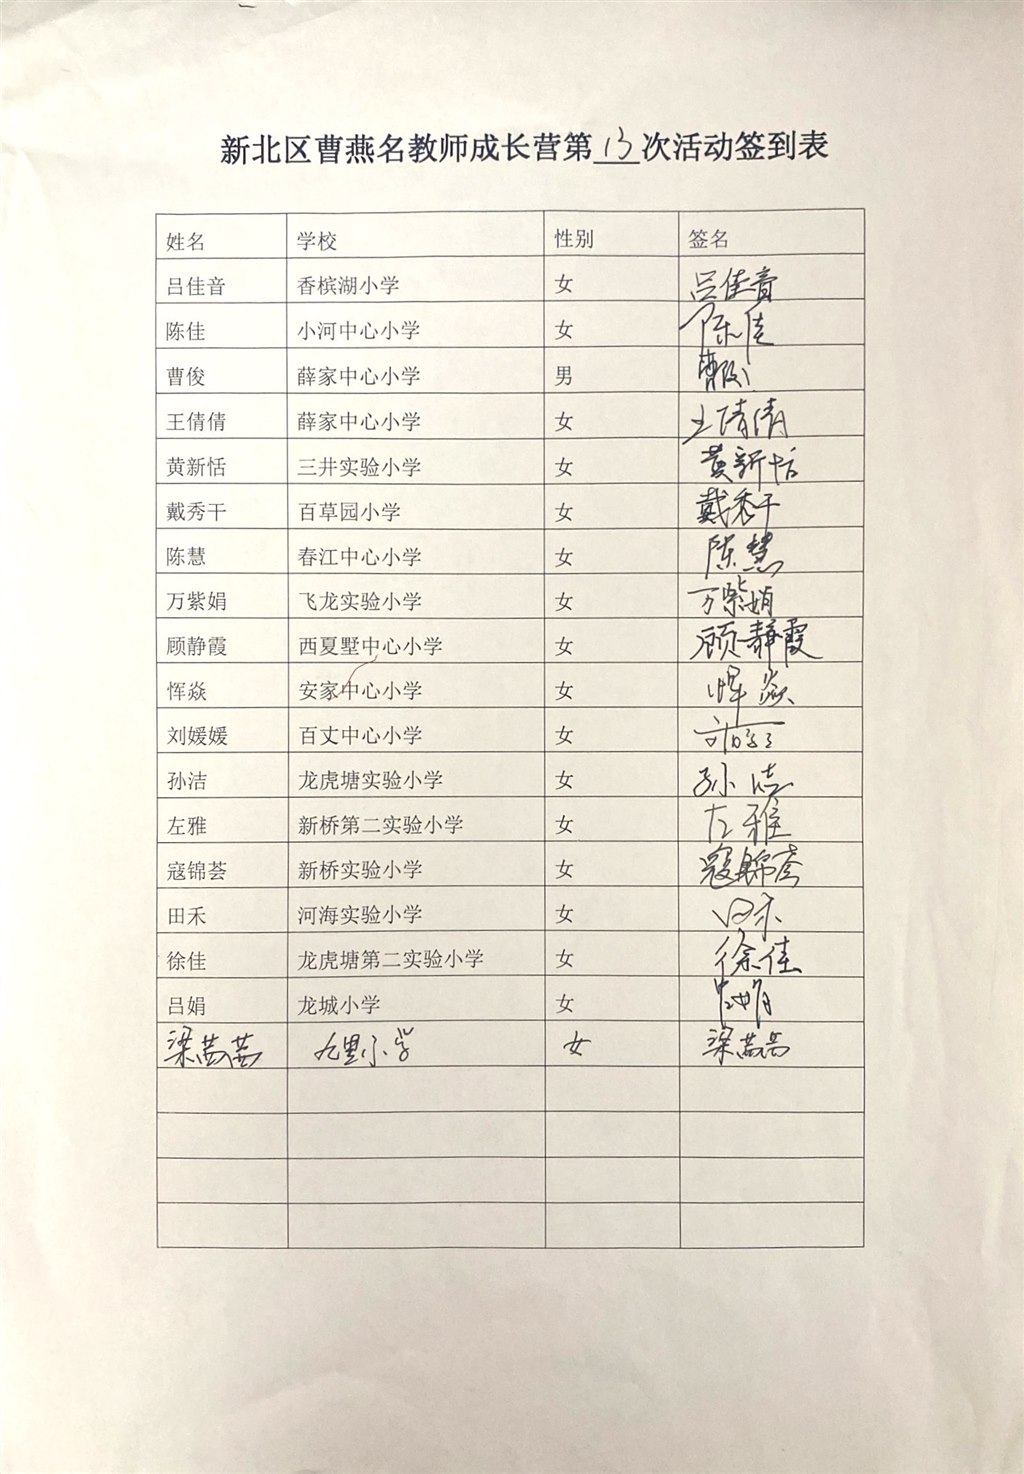 新北区曹燕名教师成长营第13次活动签到表
姓名 学校 性别 签名
吕佳音 香槟湖小学 女 吕佳音
陈佳 小河中心小学 女 陈佳
曹俊 薛家中心小学 男 曹俊
王倩倩 薛家中心小学 女 王倩倩
黄新恬 三井实验小学 女 黄新恬
戴秀干 百草园小学 女 戴秀干
陈慧 春江中心小学 女 陈慧
万紫娟 飞龙实验小学 女 万紫娟
顾静霞 西夏墅中心小学 女 顾静霞
恽焱 安家中心小学 女 恽焱
刘媛媛 百丈中心小学 女
孙洁 龙虎塘实验小学 女 孙洁
左雅 新桥第二实验小学 女 左雅
寇锦荟 新桥实验小学 女 寇锦荟
田禾 河海实验小学 女 田禾
徐佳 龙虎塘第二实验小学 女 徐佳
吕娟 龙城小学 女 吕娟
梁 九里小学 女 梁